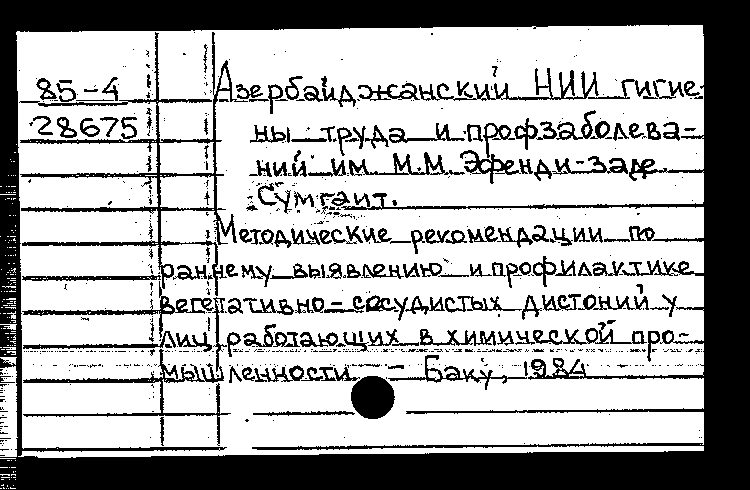 85-4
28675
Азербайджанский НИИ гигие-
ны труда и профзаболева-
ний им. М.М. Эфенди-заде
Сумгаит.
Методические рекомендации по
раннему выявлению и профилактике
вегетативно-сосудистых дистоний у
лиц, работающих в химической про-
мышленности. - Баку, 1984